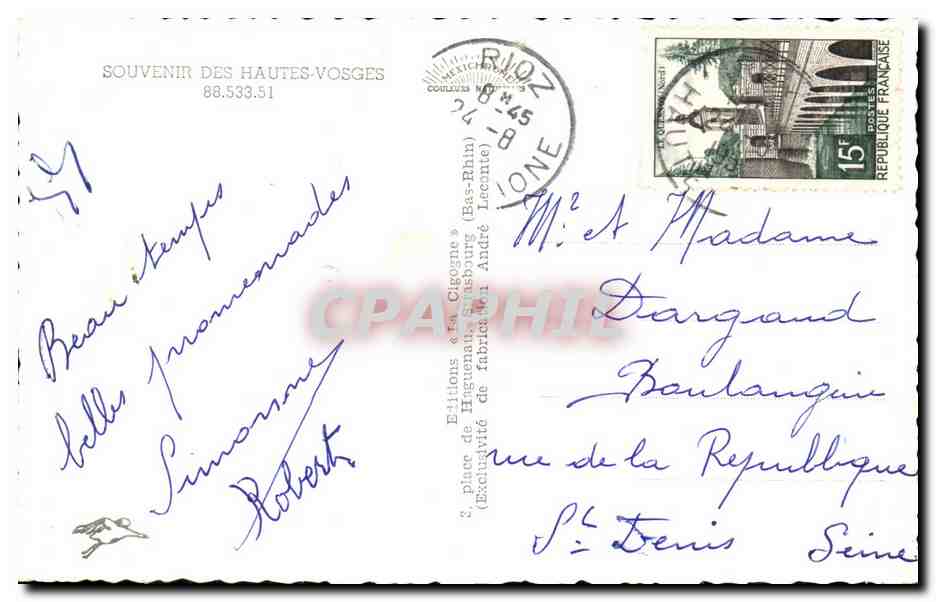 SOUVENIR DES HAUTES-VOSGES
88.533.51
Beau temps
belles promenades
Simonne
Robert
Editions « La Cigogne »
2, place de Haguenau, Strasbourg (Bas-Rhin)
(Exclusivité de fabrication André Leconte)
MEXICHROME
COULEURS NATURELLES
RIOZ
8 H 45
24 -8
HAUTE
ONE
LE QUESNOY (Nord)
15F
POSTES
REPUBLIQUE FRANÇAISE
Mr. et Madame
Dargaud
Boulangerie
rue de la République
St Denis Seine
CPAPHIL